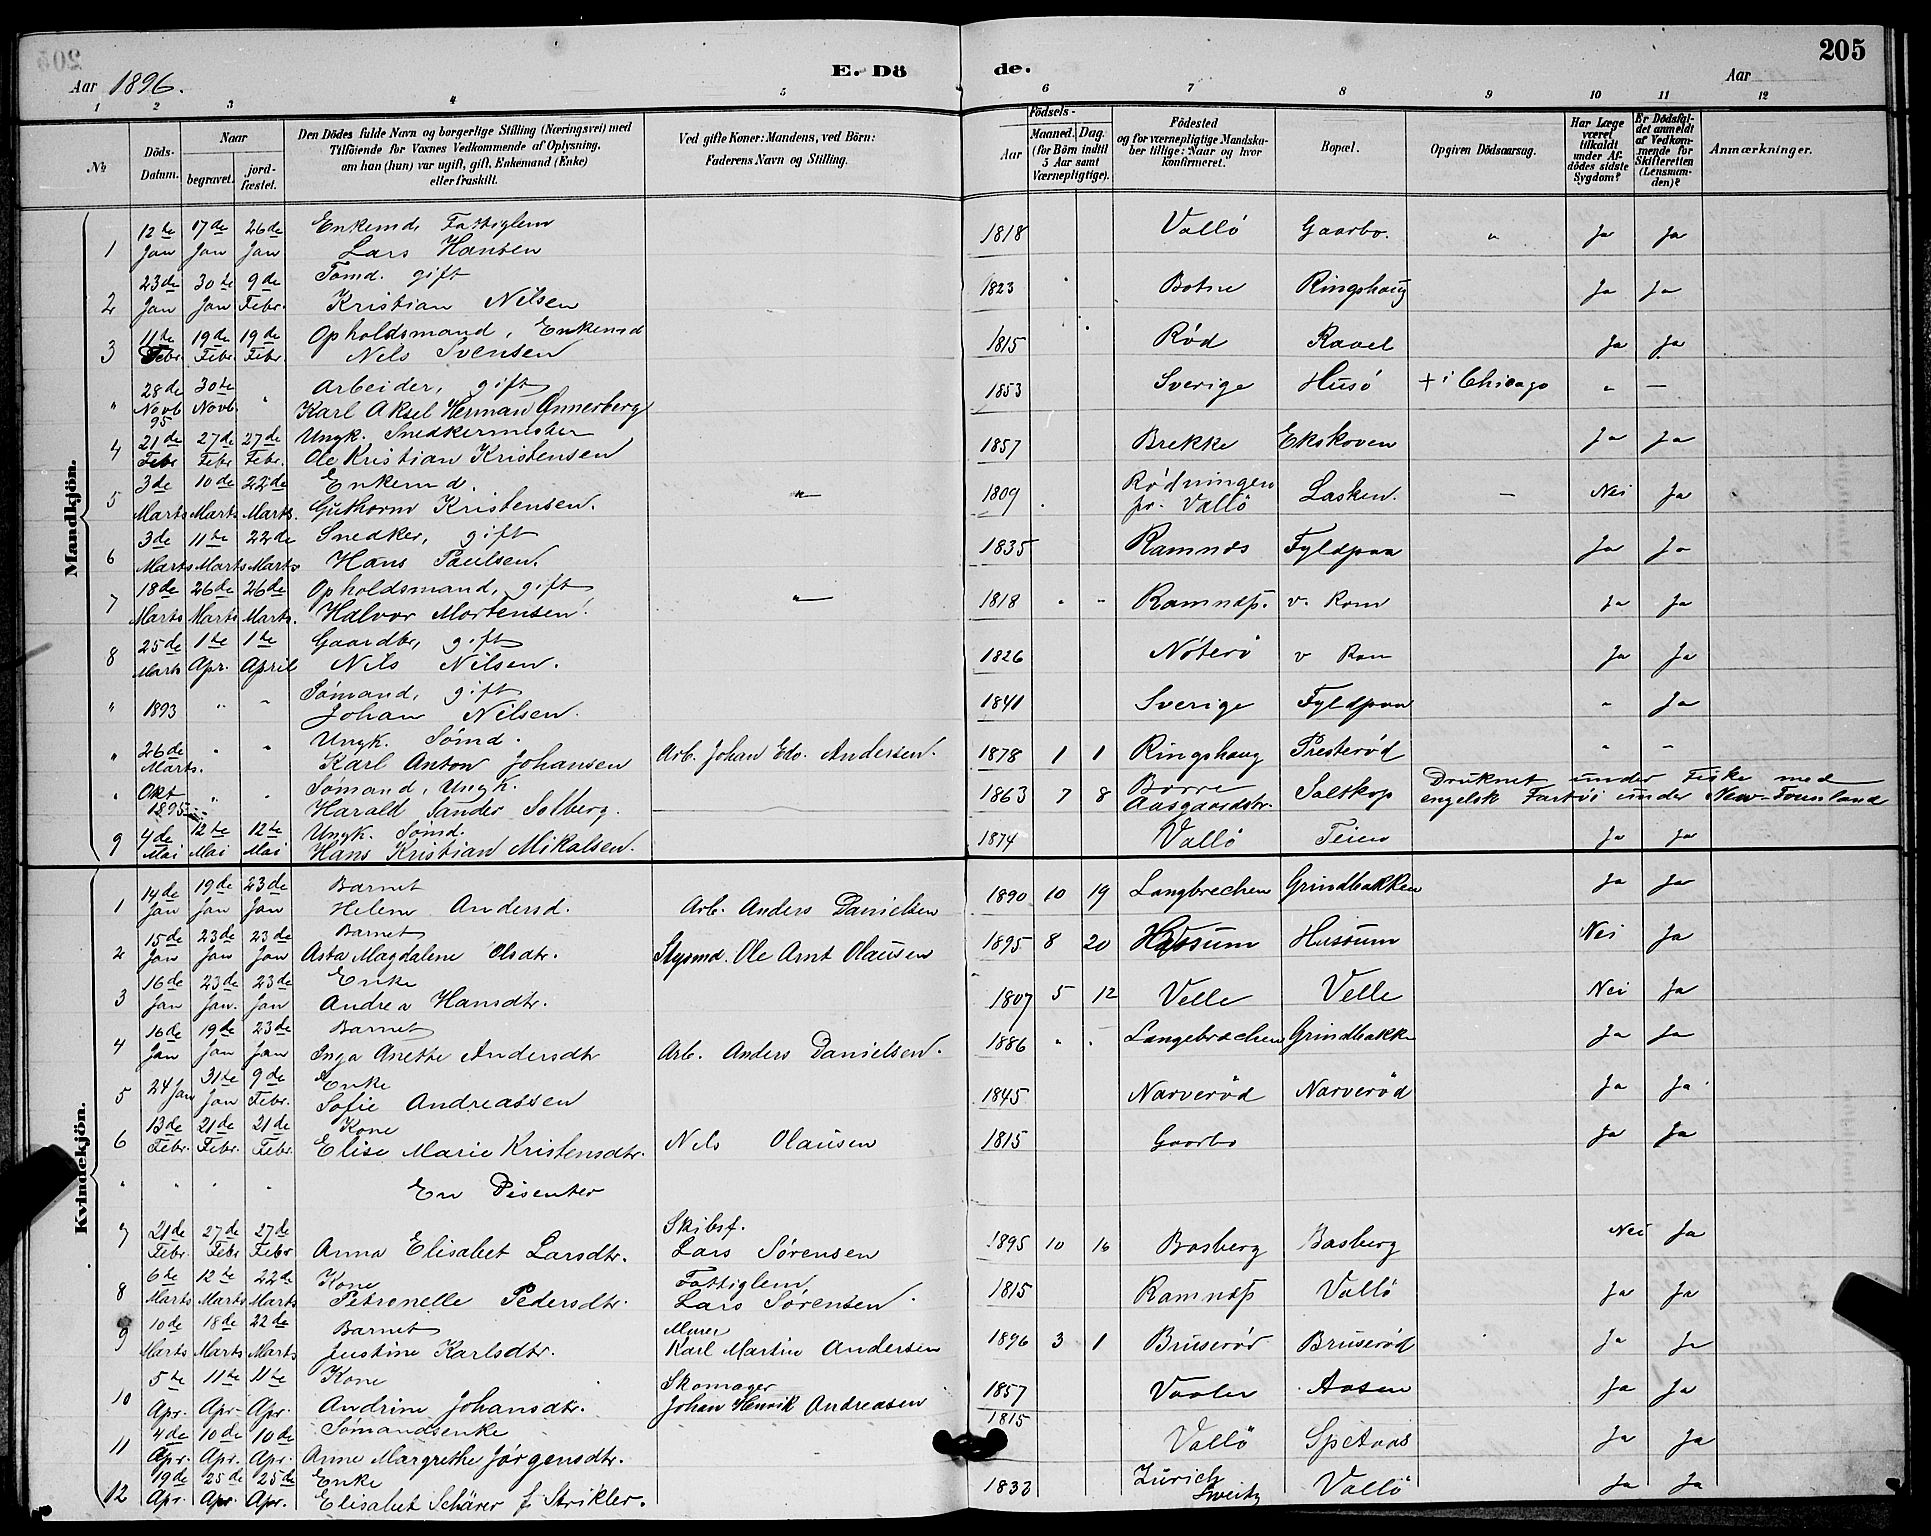 205
Aar 1896.
E. Dö de.
Aar
1 2 3 4 5 6 7 8 9 10 11 12
No
Döds-Datum.
Naar
begravet. jordfæstet.
Den Dödes fulde Navn og borgerlige Stilling (Næringsvei) med
Tilföiende for Voxnes Vedkommende af Oplysning,
om han (hun) var ugift, gift, Enkemand (Enke)
eller fraskilt.
Ved gifte Koner: Mandens, ved Börn:
Faderens Navn og Stilling.
Födsels-
Aar
Maaned. Dag.
(for Börn indtil
5 Aar samt
Værnepligtige).
Födested
og for værnepligtige Mandska-
ber tillige: Naar og hvor
konfirmeret.
Bopæl.
Opgiven Dödsaarsag.
Har Læge
været
tilkaldt
under Af-
dödes sidste
Sygdom?
Er Dödsfal-
det anmeldt
af Vedkom-
mende for
Skifteretten
(Lensman-
den)?
Anmærkninger.
Mandkjön.
12te 17de 26de Enkemd, Fattiglem
1 Jan Jan Jan Lars Hansen 1818 Vallö Gaarbo. " Ja Ja
23de 30te 9de Sømd. gift
2 Jan Jan Febr. Kristian Nilsen 1823 Botne Ringshaug Ja Ja
11te 19de 19de Opholdsmand, Enkemd
3 Febr. Febr Febr. Nils Svensen 1815 Rød Ravel Ja Ja
28de 30te Arbeider, gift
" Novb 95 Novb. " Karl Aksel Herman Annerberg 1853 Sverige Husö + i Chicago " —
21de 27de 27de Ungk. Snedkermester
4 Febr Febr Febr. Ole Kristian Kristensen 1857 Brekke Ekskoven Ja Ja
3de 10de 22de Enkemd.
5 Marts Marts Marts. Guthorm Kristensen. " 1809 Rødningen pr. Vallö Lasken. — Nei Ja
3de 11te 22de Snedker, gift
6 Marts Marts Marts Hans Paulsen. 1835 Ramnes Fyldpaa Ja Ja
18de 26de 26de Opholdsmand, gift
7 Marts Marts Marts. Halvor Mortensen. " 1818 " " Ramnæs. v. Rom Ja Ja
25de 1te 1te Gaardbr, gift
8 Marts Apr. April Nils Nilsen. 1826 Nöterö v Rom Ja Ja
Sømand, gift
" 1893 " " Johan Nilsen. 1841 Sverige Fyldpaa " Ja
26de Ungk. Sømd.
" Marts. " " Karl Anton Johansen Arb. Johan Edv. Andersen. 1878 1 1 Ringshaug Presterød " "
Okt Sømand, Ungk.
" 1895 " " Harald Sander Solberg. 1863 7 8 Borre Aasgaardstr. Saltkop Druknet under Fiske med
engelsk Fartøi under New-Founland
4de 12te 12te Ungk. Sømd.
9 Mai Mai Mai Hans Kristian Mikalsen. 1874 Vallö Teien Ja Ja
Kvindekjön.
14de 19de 23de Barnet
1 Jan Jan Jan Helene Andersd. Arb. Anders Danielsen 1890 10 19 Langbrechen Grindbakken Ja Ja
15de 23de 23de Barnet
2 Jan Jan Jan Asta Magdalene Olsdtr. Stysmd. Ole Arnt Olausen 1895 8 20 Hussum Hussum Nei Ja
16de 23de 23de Enke
3 Jan Jan. Jan Andrea Hansdtr. 1807 5 12 Velle Velle Nei Ja
16de 19de 23de Barnet
4 Jan Jan Jan Inga Anette Andersdtr Arb. Anders Danielsen. 1886 " " Langebrechen Grindbakke Ja Ja
31te 9de Enke
5 24 Jan Jan Febr. Sofie Andreassen 1845 Narverød Narverød Ja Ja
13de 21de 21de Kone
6 Febr. Febr. Febr. Elise Marie Kristensdtr. Nils Olausen 1815 Gaarbo Ja Ja
" " " " En Disenter
21de 27de 27de Skibsf.
7 Febr. Febr Febr Anna Elisabet Larsdtr. Lars Sørensen 1895 10 16 Basberg Basberg Nei Ja
6te 12te 22de Kone Fattiglem
8 Marts Marts Marts Petronelle Pedersdtr. Lars Sørensen 1815 Ramnæs Vallö Ja Ja
10de 18de 22de Barnet Murer
9 Marts Marts Marts Justine Karlsdtr. Karl Martin Andersen 1896 3 1 Bruserød Bruserød Ja Ja
5te 11te 11te Kone Skomager
10 Apr. Apr. Apr. Andrine Johansdtr. Johan Henrik Andreasen 1857 Vaaler Aasen Ja Ja
4de 10de 10de Sømandsenke
11 Apr. Apr. Apr. Anne Margrethe Jörgensdtr. 1815 Vallö Spetaas Ja Ja
19de 25de 25de Enke
12 Apr. Apr. Apr. Elisabet Schärer f. Strikler. 1832 Zürich Sweitz Vallö Ja Ja